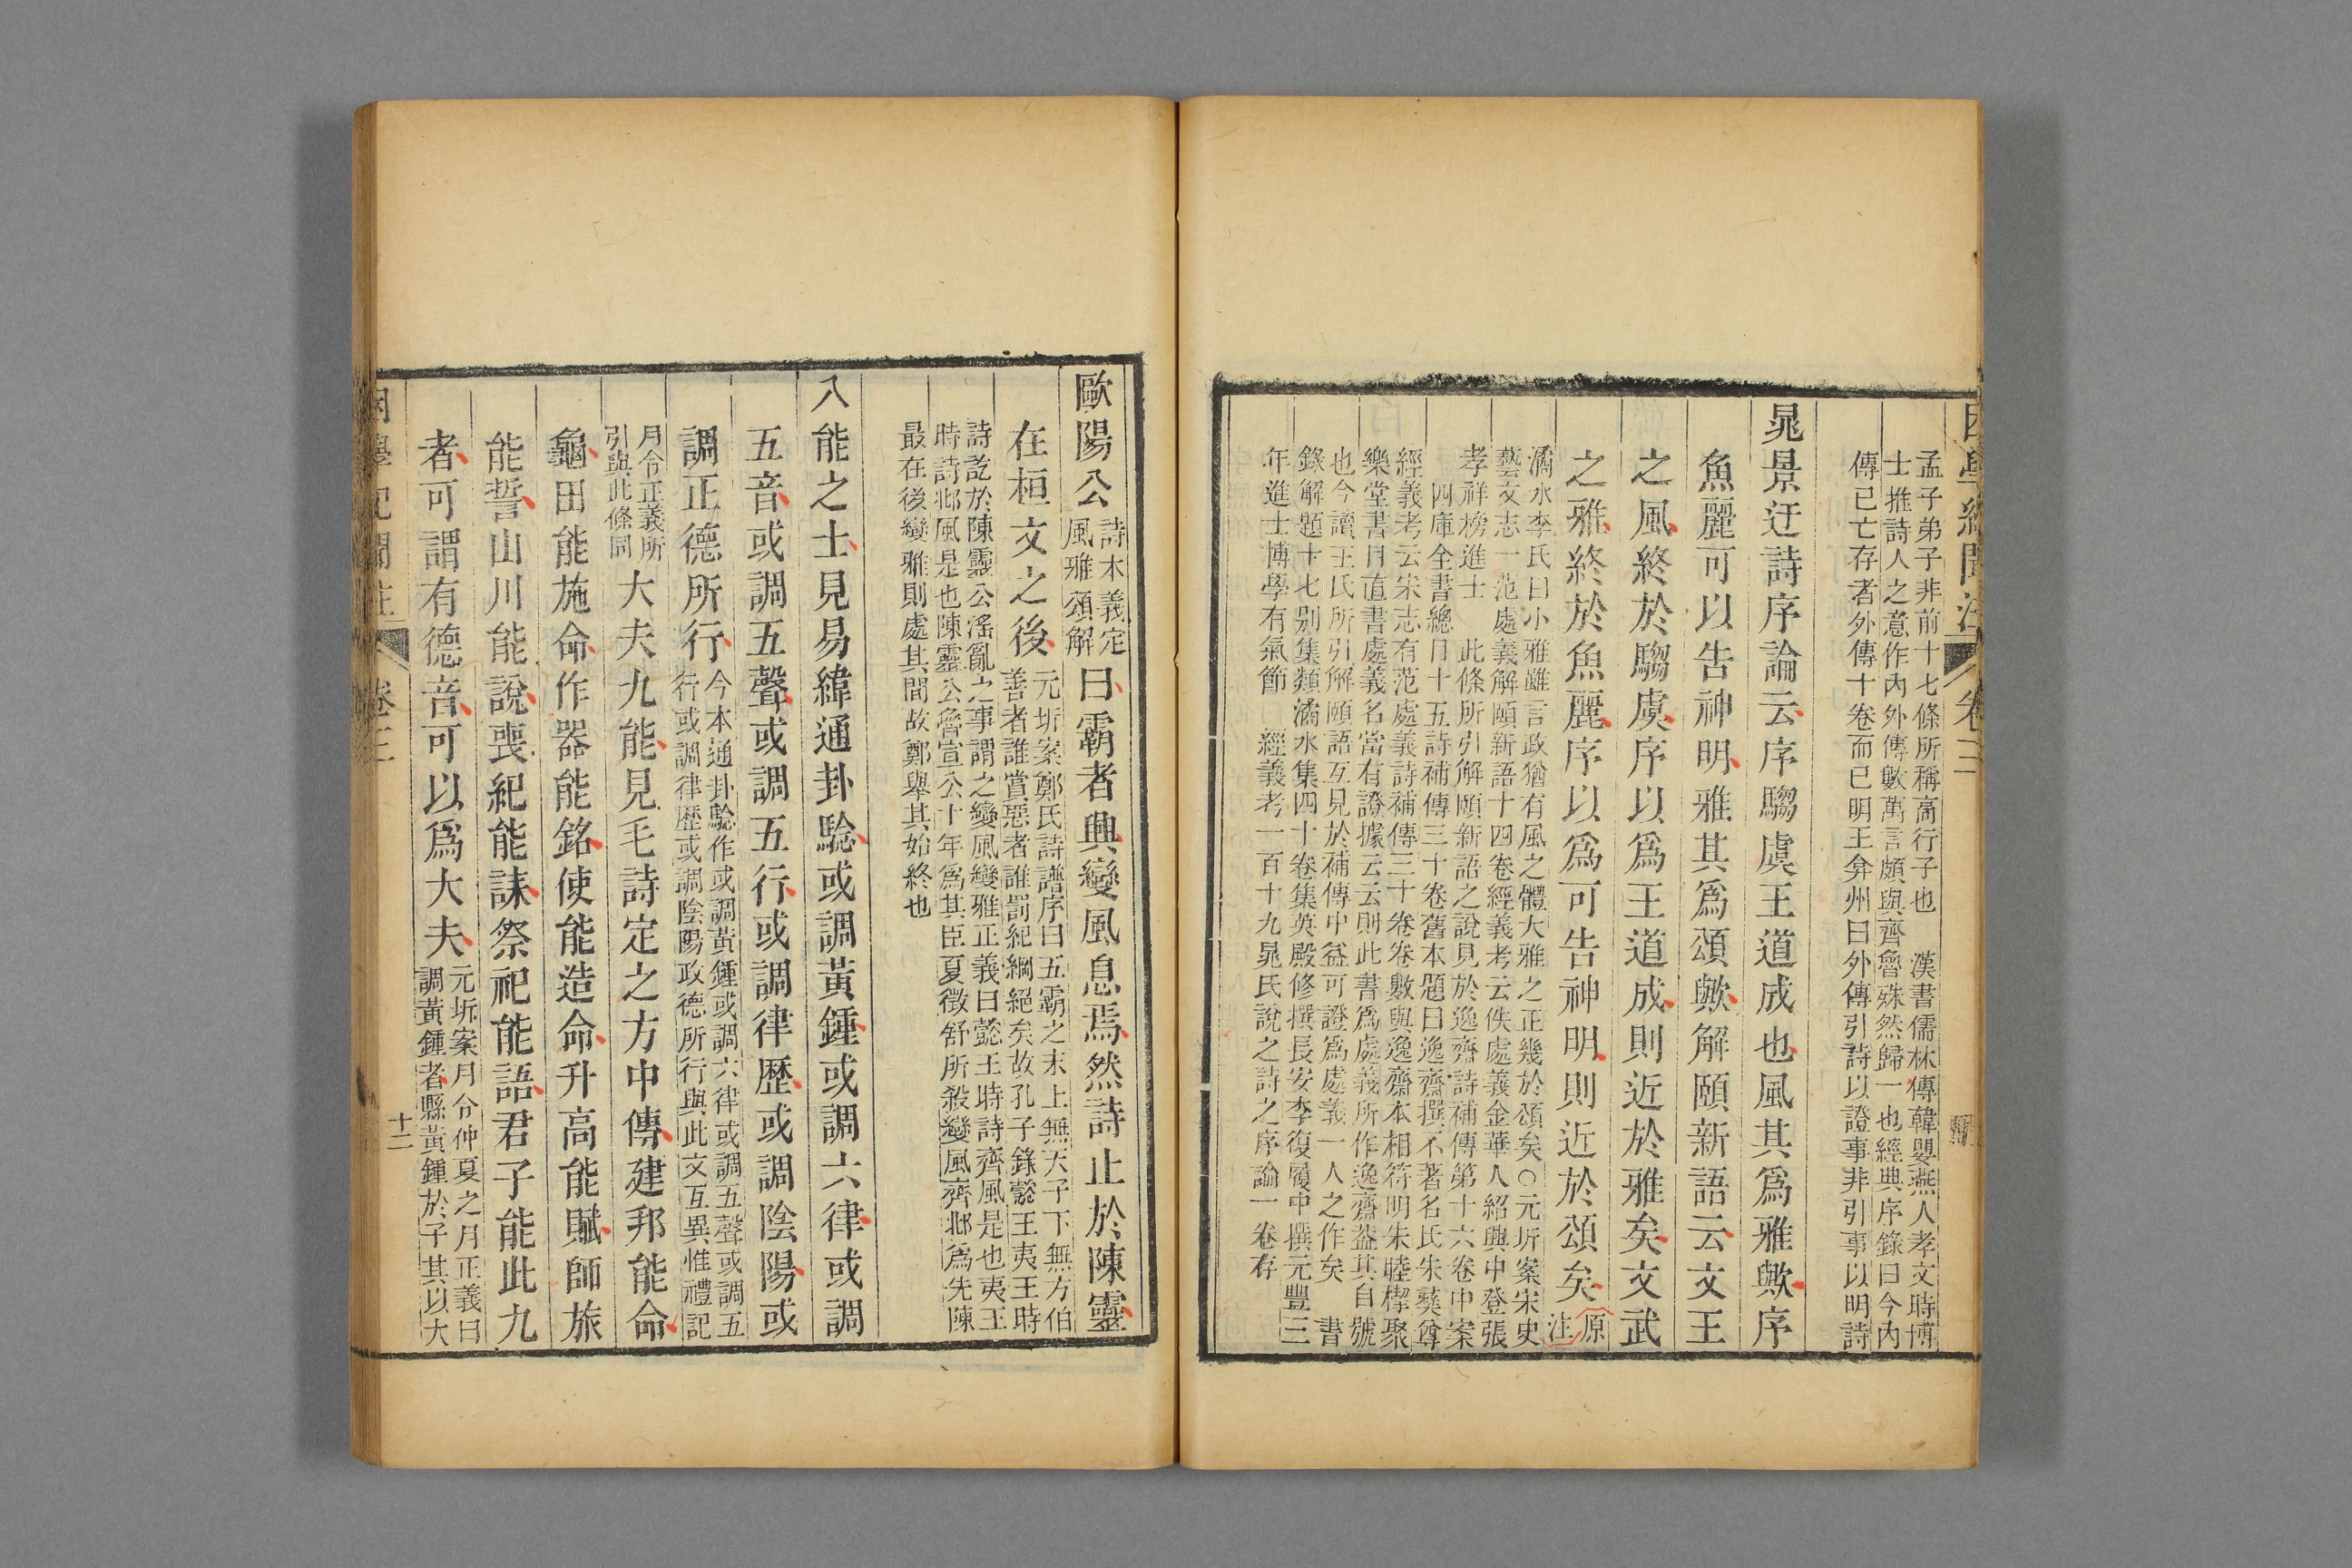 困學紀聞注 卷三
孟子弟子非前十七條所稱高行子也　漢書儒林傳韓嬰燕人孝文時博
士推詩人之意作內外傳數萬言頗與齊魯殊然歸一也經典序錄曰今內
傳已亡存者外傳十卷而已明王弇州曰外傳引詩以證事非引事以明詩
晁景迂詩序論云序騶虞王道成也風其爲雅歟序
魚麗可以告神明雅其爲頌歟解頤新語云文王
之風終於騶虞序以爲王道成則近於雅矣文武
之雅終於魚麗序以爲可告神明則近於頌矣原
注
潏水李氏曰小雅雖言政猶有風之體大雅之正幾於頌矣○元圻案宋史
藝文志一范處義解頤新語十四卷經義考云佚處義金華人紹興中登張
孝祥榜進士　此條所引解頤新語之說見於逸齋詩補傳第十六卷中案
四庫全書總目十五詩補傳三十卷舊本題曰逸齋撰不著名氏朱彝尊
經義考云宋志有范處義詩補傳三十卷卷數與逸齋本相符明朱睦㮮聚
樂堂書目直書處義名當有證據云云則此書爲處義所作逸齋蓋其自號
也今讀王氏所引解頤語互見於補傳中益可證爲處義一人之作矣　書
錄解題十七別集類潏水集四十卷集英殿修撰長安李復履中撰元豐三
年進士博學有氣節　經義考一百十九晁氏說之詩之序論一卷存
歐陽公詩本義定
風雅頌解曰霸者興變風息焉然詩止於陳靈
在桓文之後元圻案鄭氏詩譜序曰五霸之末上無天子下無方伯
善者誰賞惡者誰罰紀綱絕矣故孔子錄懿王夷王時
詩訖於陳靈公淫亂之事謂之變風變雅正義曰懿王時詩齊風是也夷王
時詩邶風是也陳靈公魯宣公十年爲其臣夏徵舒所殺變風齊邶爲先陳
最在後變雅則處其間故鄭舉其始終也
八能之士見易緯通卦驗或調黃鍾或調六律或調
五音或調五聲或調五行或調律歷或調陰陽或
調正德所行今本通卦驗作或調黃鍾或調六律或調五聲或調五
行或調律歷或調陰陽政德所行與此文互異惟禮記
月令正義所
引與此條同大夫九能見毛詩定之方中傳建邦能命
龜田能施命作器能銘使能造命升高能賦師旅
能誓山川能說喪紀能誄祭祀能語君子能此九
者可謂有德音可以爲大夫元圻案月令仲夏之月正義曰
調黃鍾者縣黃鍾於子其以大
困學紀聞注 卷三 十二